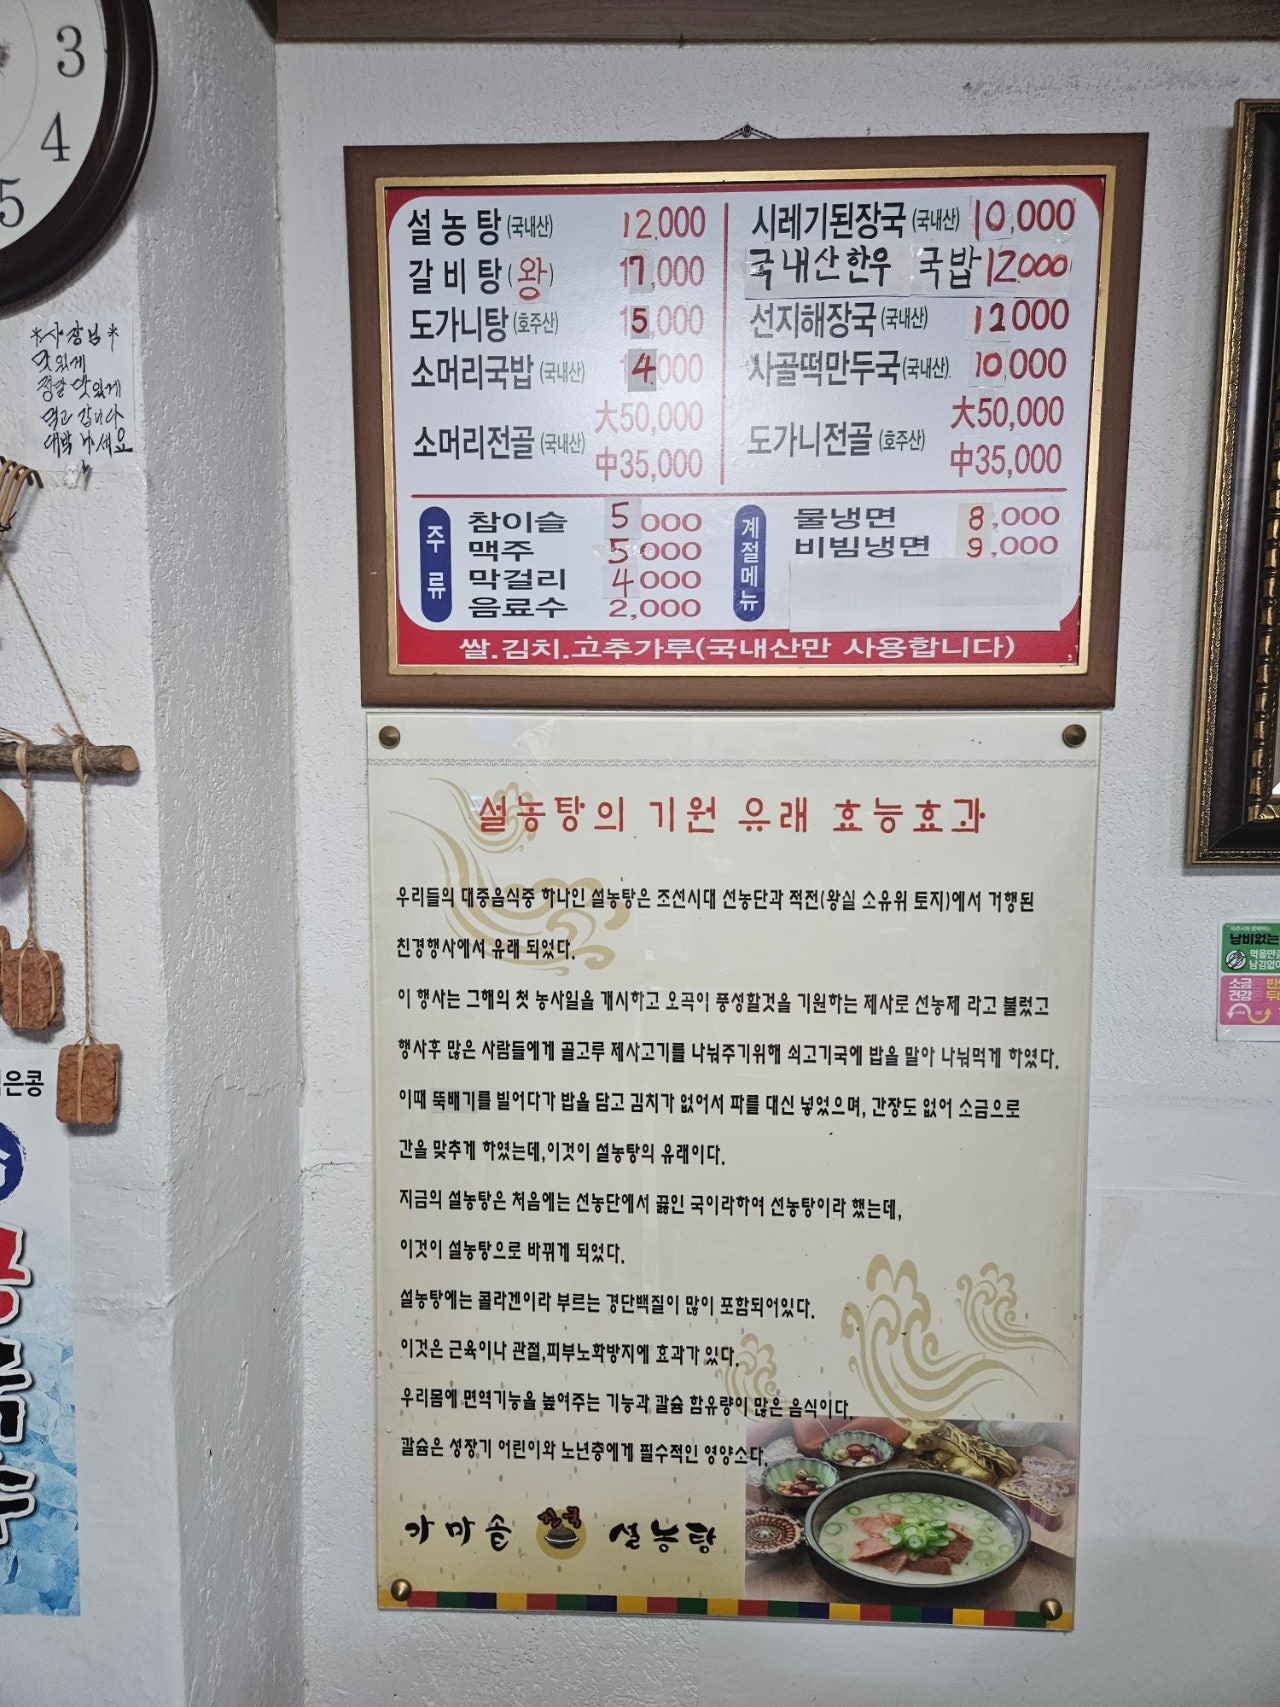 3
4
5
*사장님*
맛있게
정말 맛있게
먹고 갑니다
대박 나세요
설농탕(국내산) 12,000
갈비탕(왕) 17,000
도가니탕(호주산) 15,000
소머리국밥(국내산) 14,000
소머리전골(국내산) 大50,000
中35,000
시레기된장국(국내산) 10,000
국내산한우 국밥 12,000
선지해장국(국내산) 12000
사골떡만두국(국내산) 10,000
도가니전골(호주산) 大50,000
中35,000
주류
참이슬 5000
맥주 5000
막걸리 4000
음료수 2,000
계절메뉴
물냉면 8,000
비빔냉면 9,000
쌀.김치.고추가루(국내산만 사용합니다)
설농탕의 기원 유래 효능효과
우리들의 대중음식중 하나인 설농탕은 조선시대 선농단과 적전(왕실 소유위 토지)에서 거행된
친경행사에서 유래 되었다.
이 행사는 그해의 첫 농사일을 개시하고 오곡이 풍성할것을 기원하는 제사로 선농제 라고 불렀고
행사후 많은 사람들에게 골고루 제사고기를 나눠주기위해 쇠고기국에 밥을 말아 나눠먹게 하였다.
이때 뚝배기를 빌어다가 밥을 담고 김치가 없어서 파를 대신 넣었으며, 간장도 없어 소금으로
간을 맞추게 하였는데,이것이 설농탕의 유래이다.
지금의 설농탕은 처음에는 선농단에서 끓인 국이라하여 선농탕이라 했는데,
이것이 설농탕으로 바뀌게 되었다.
설농탕에는 콜라겐이라 부르는 경단백질이 많이 포함되어있다.
이것은 근육이나 관절,피부노화방지에 효과가 있다.
우리몸에 면역기능을 높여주는 기능과 칼슘 함유량이 많은 음식이다.
칼슘은 성장기 어린이와 노년층에게 필수적인 영양소다.
가마솥 진국 설농탕
은콩
낭비없는
먹을만큼
남김없이
소금
건강